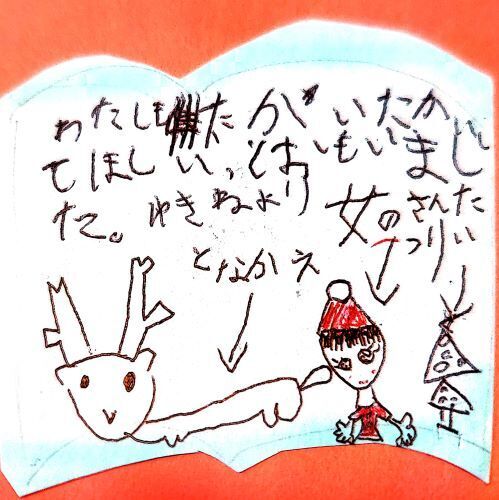 わたしもたがいいたか
てほしいっとおもいまし
た。ゆきねより
女のさんた
つりい
となかえ